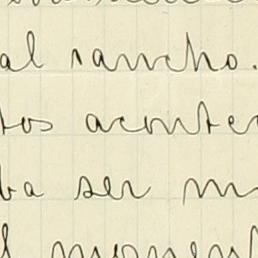 al rancho.
tos aconte
ba ser m
l moment